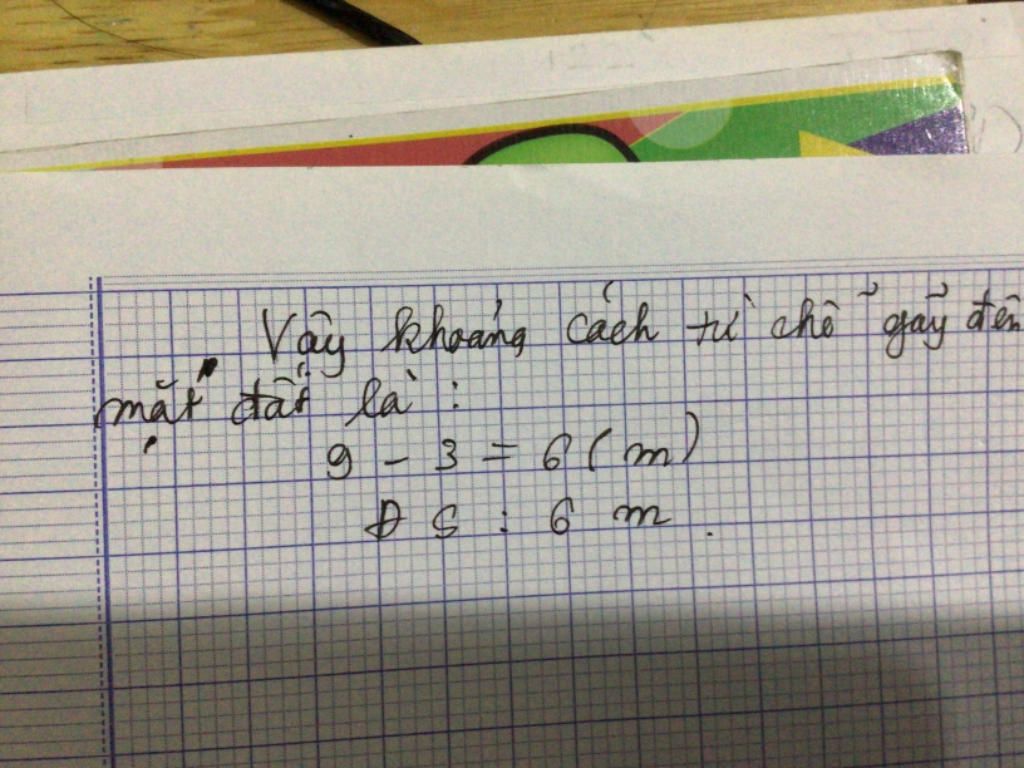 Vậy khoảng cách từ chỗ gãy đến
mặt đất là :
9 - 3 = 6 ( m )
ĐS : 6 m .